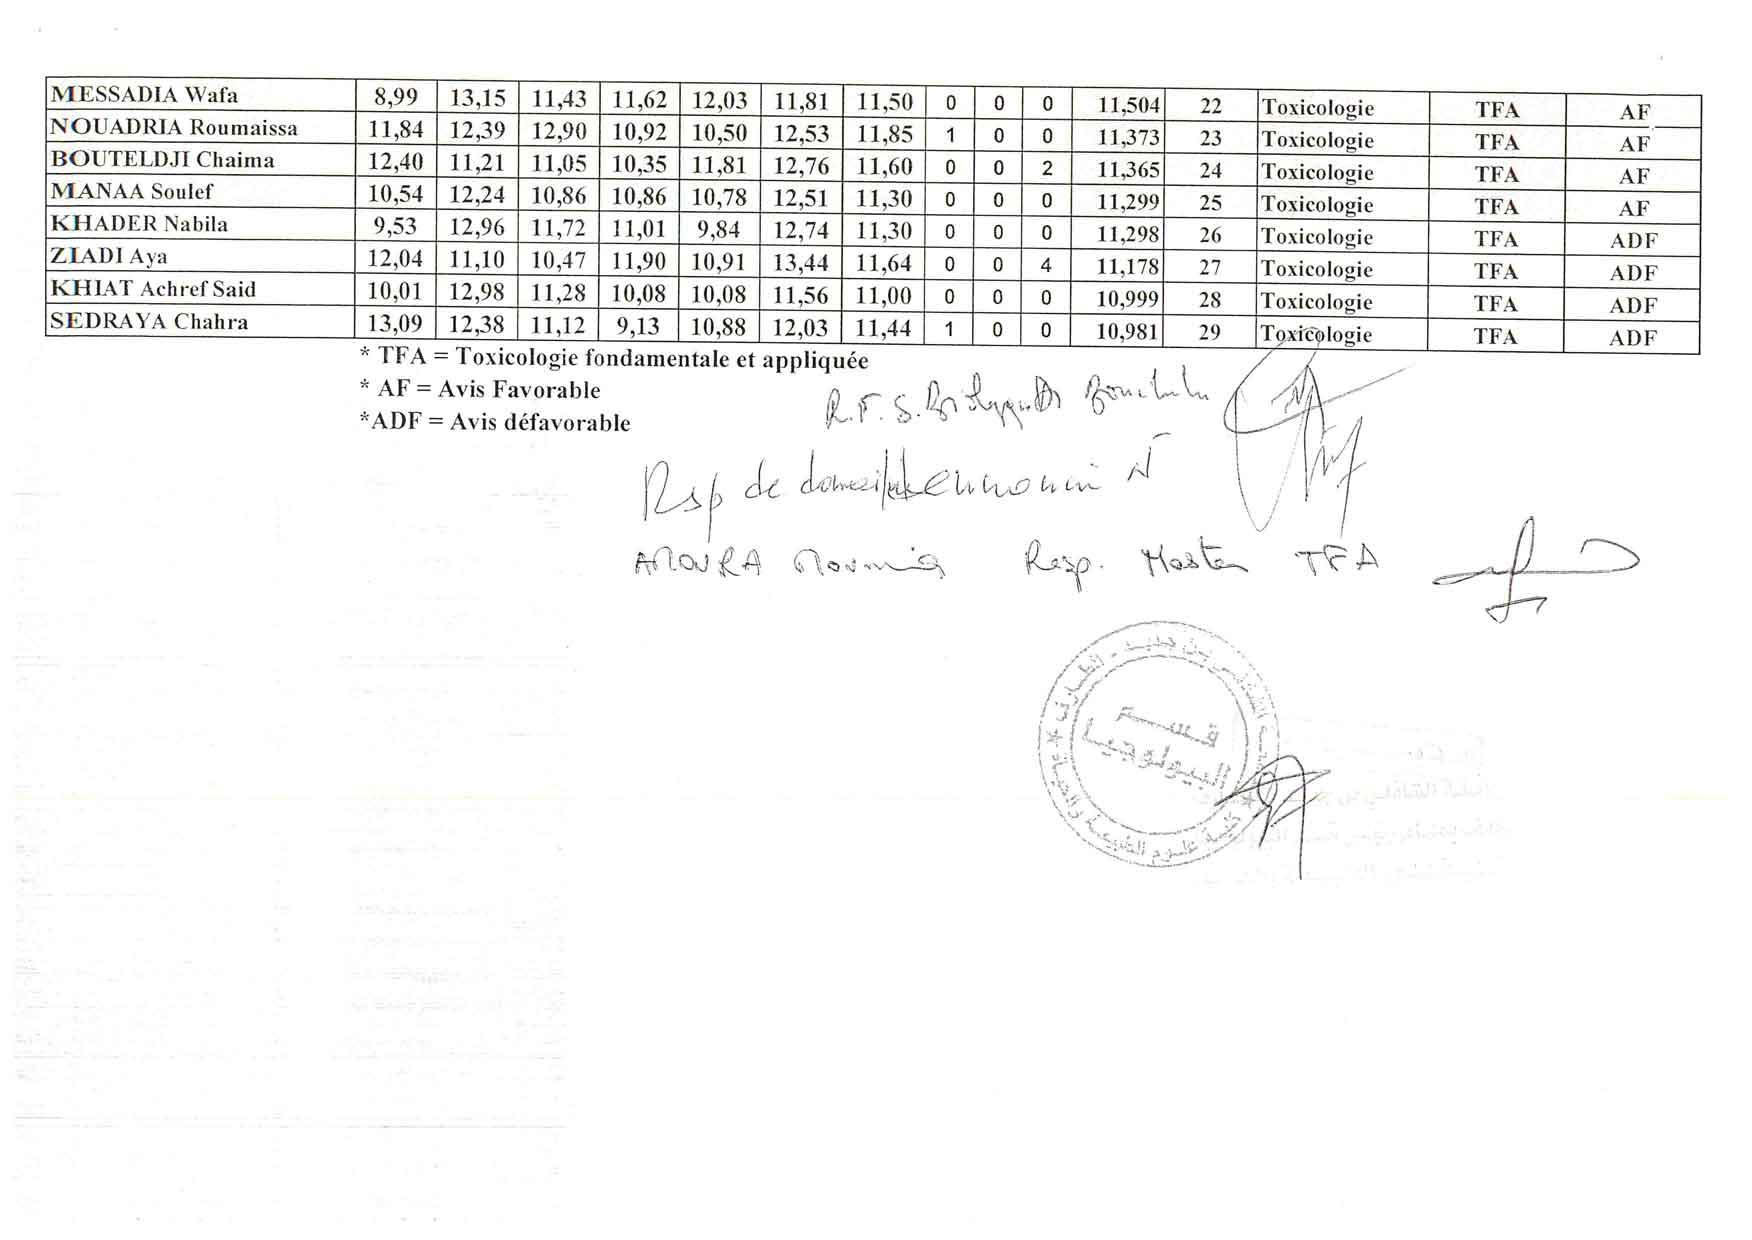 MESSADIA Wafa 8,99 13,15 11,43 11,62 12,03 11,81 11,50 0 0 0 11,504 22 Toxicologie TFA AF
NOUADRIA Roumaissa 11,84 12,39 12,90 10,92 10,50 12,53 11,85 1 0 0 11,373 23 Toxicologie TFA AF
BOUTELDJI Chaima 12,40 11,21 11,05 10,35 11,81 12,76 11,60 0 0 2 11,365 24 Toxicologie TFA AF
MANAA Soulef 10,54 12,24 10,86 10,86 10,78 12,51 11,30 0 0 0 11,299 25 Toxicologie TFA AF
KHADER Nabila 9,53 12,96 11,72 11,01 9,84 12,74 11,30 0 0 0 11,298 26 Toxicologie TFA ADF
ZIADI Aya 12,04 11,10 10,47 11,90 10,91 13,44 11,64 0 0 4 11,178 27 Toxicologie TFA ADF
KHIAT Achref Said 10,01 12,98 11,28 10,08 10,08 11,56 11,00 0 0 0 10,999 28 Toxicologie TFA ADF
SEDRAYA Chahra 13,09 12,38 11,12 9,13 10,88 12,03 11,44 1 0 0 10,981 29 Toxicologie TFA ADF
* TFA = Toxicologie fondamentale et appliquée
* AF = Avis Favorable
*ADF = Avis défavorable
R.F.S.
Rsp de
AMOURA Resp. Master TFA
قسم
البيولوجيا
كلية علوم الطبيعة والحياة